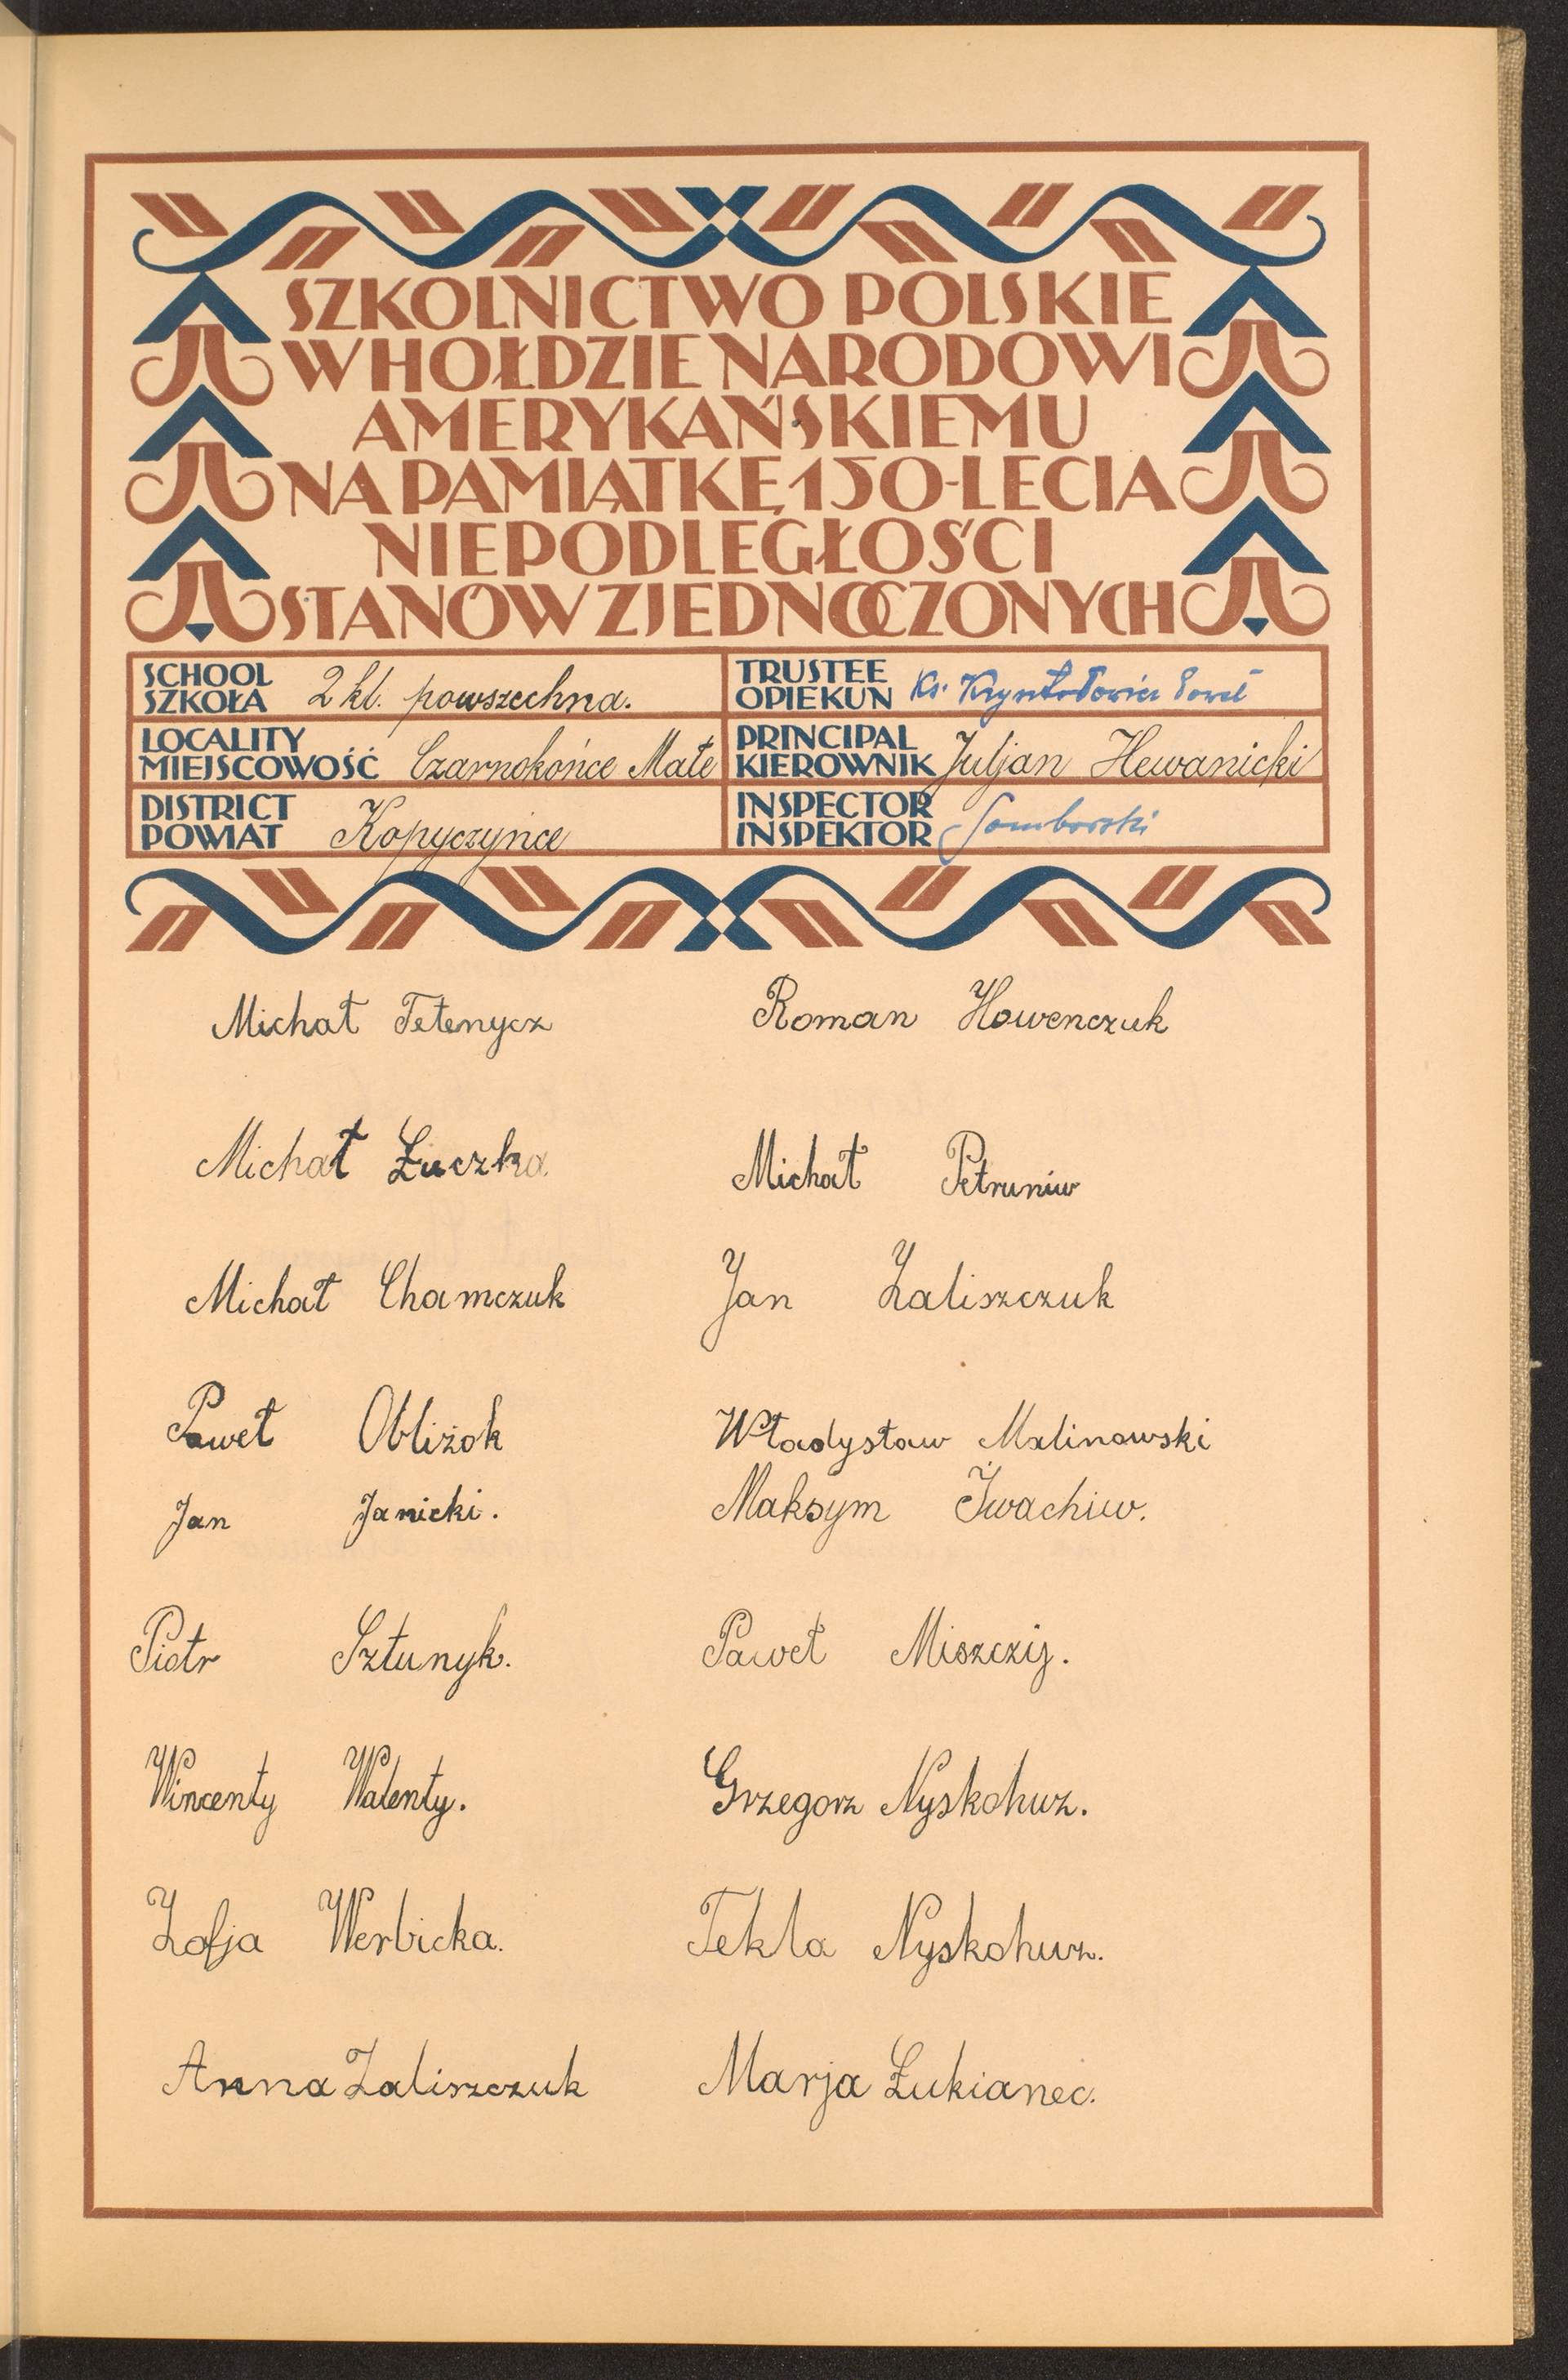 SZKOLNICTWO POLSKIE
W HOŁDZIE NARODOWI
AMERYKAŃSKIEMU
NA PAMIĄTKĘ 150-LECIA
NIEPODLEGŁOŚCI
STANÓW ZJEDNOCZONYCH
SCHOOL
SZKOŁA 2 kl. powszechna.
TRUSTEE
OPIEKUN Ks.
LOCALITY
MIEJSCOWOŚĆ Czarnokońce Małe
PRINCIPAL
KIEROWNIK Juljan Hewanicki
DISTRICT
POWIAT Kopyczyńce
INSPECTOR
INSPEKTOR Somborski
Michał Tetenycz
Roman Howenczuk
Michał Łuczka.
Michał Petruniw
Michał Chamczuk
Jan Zaliszczuk
Paweł Obliżok
Władysław Malinowski
Jan Janicki.
Maksym Iwachiw.
Piotr Sztunyk.
Paweł Miszczij.
Wincenty Walenty.
Grzegorz Nyskohuz.
Zofja Werbicka.
Tekla Nyskohuz.
Anna Zaliszczuk
Marja Łukianec.